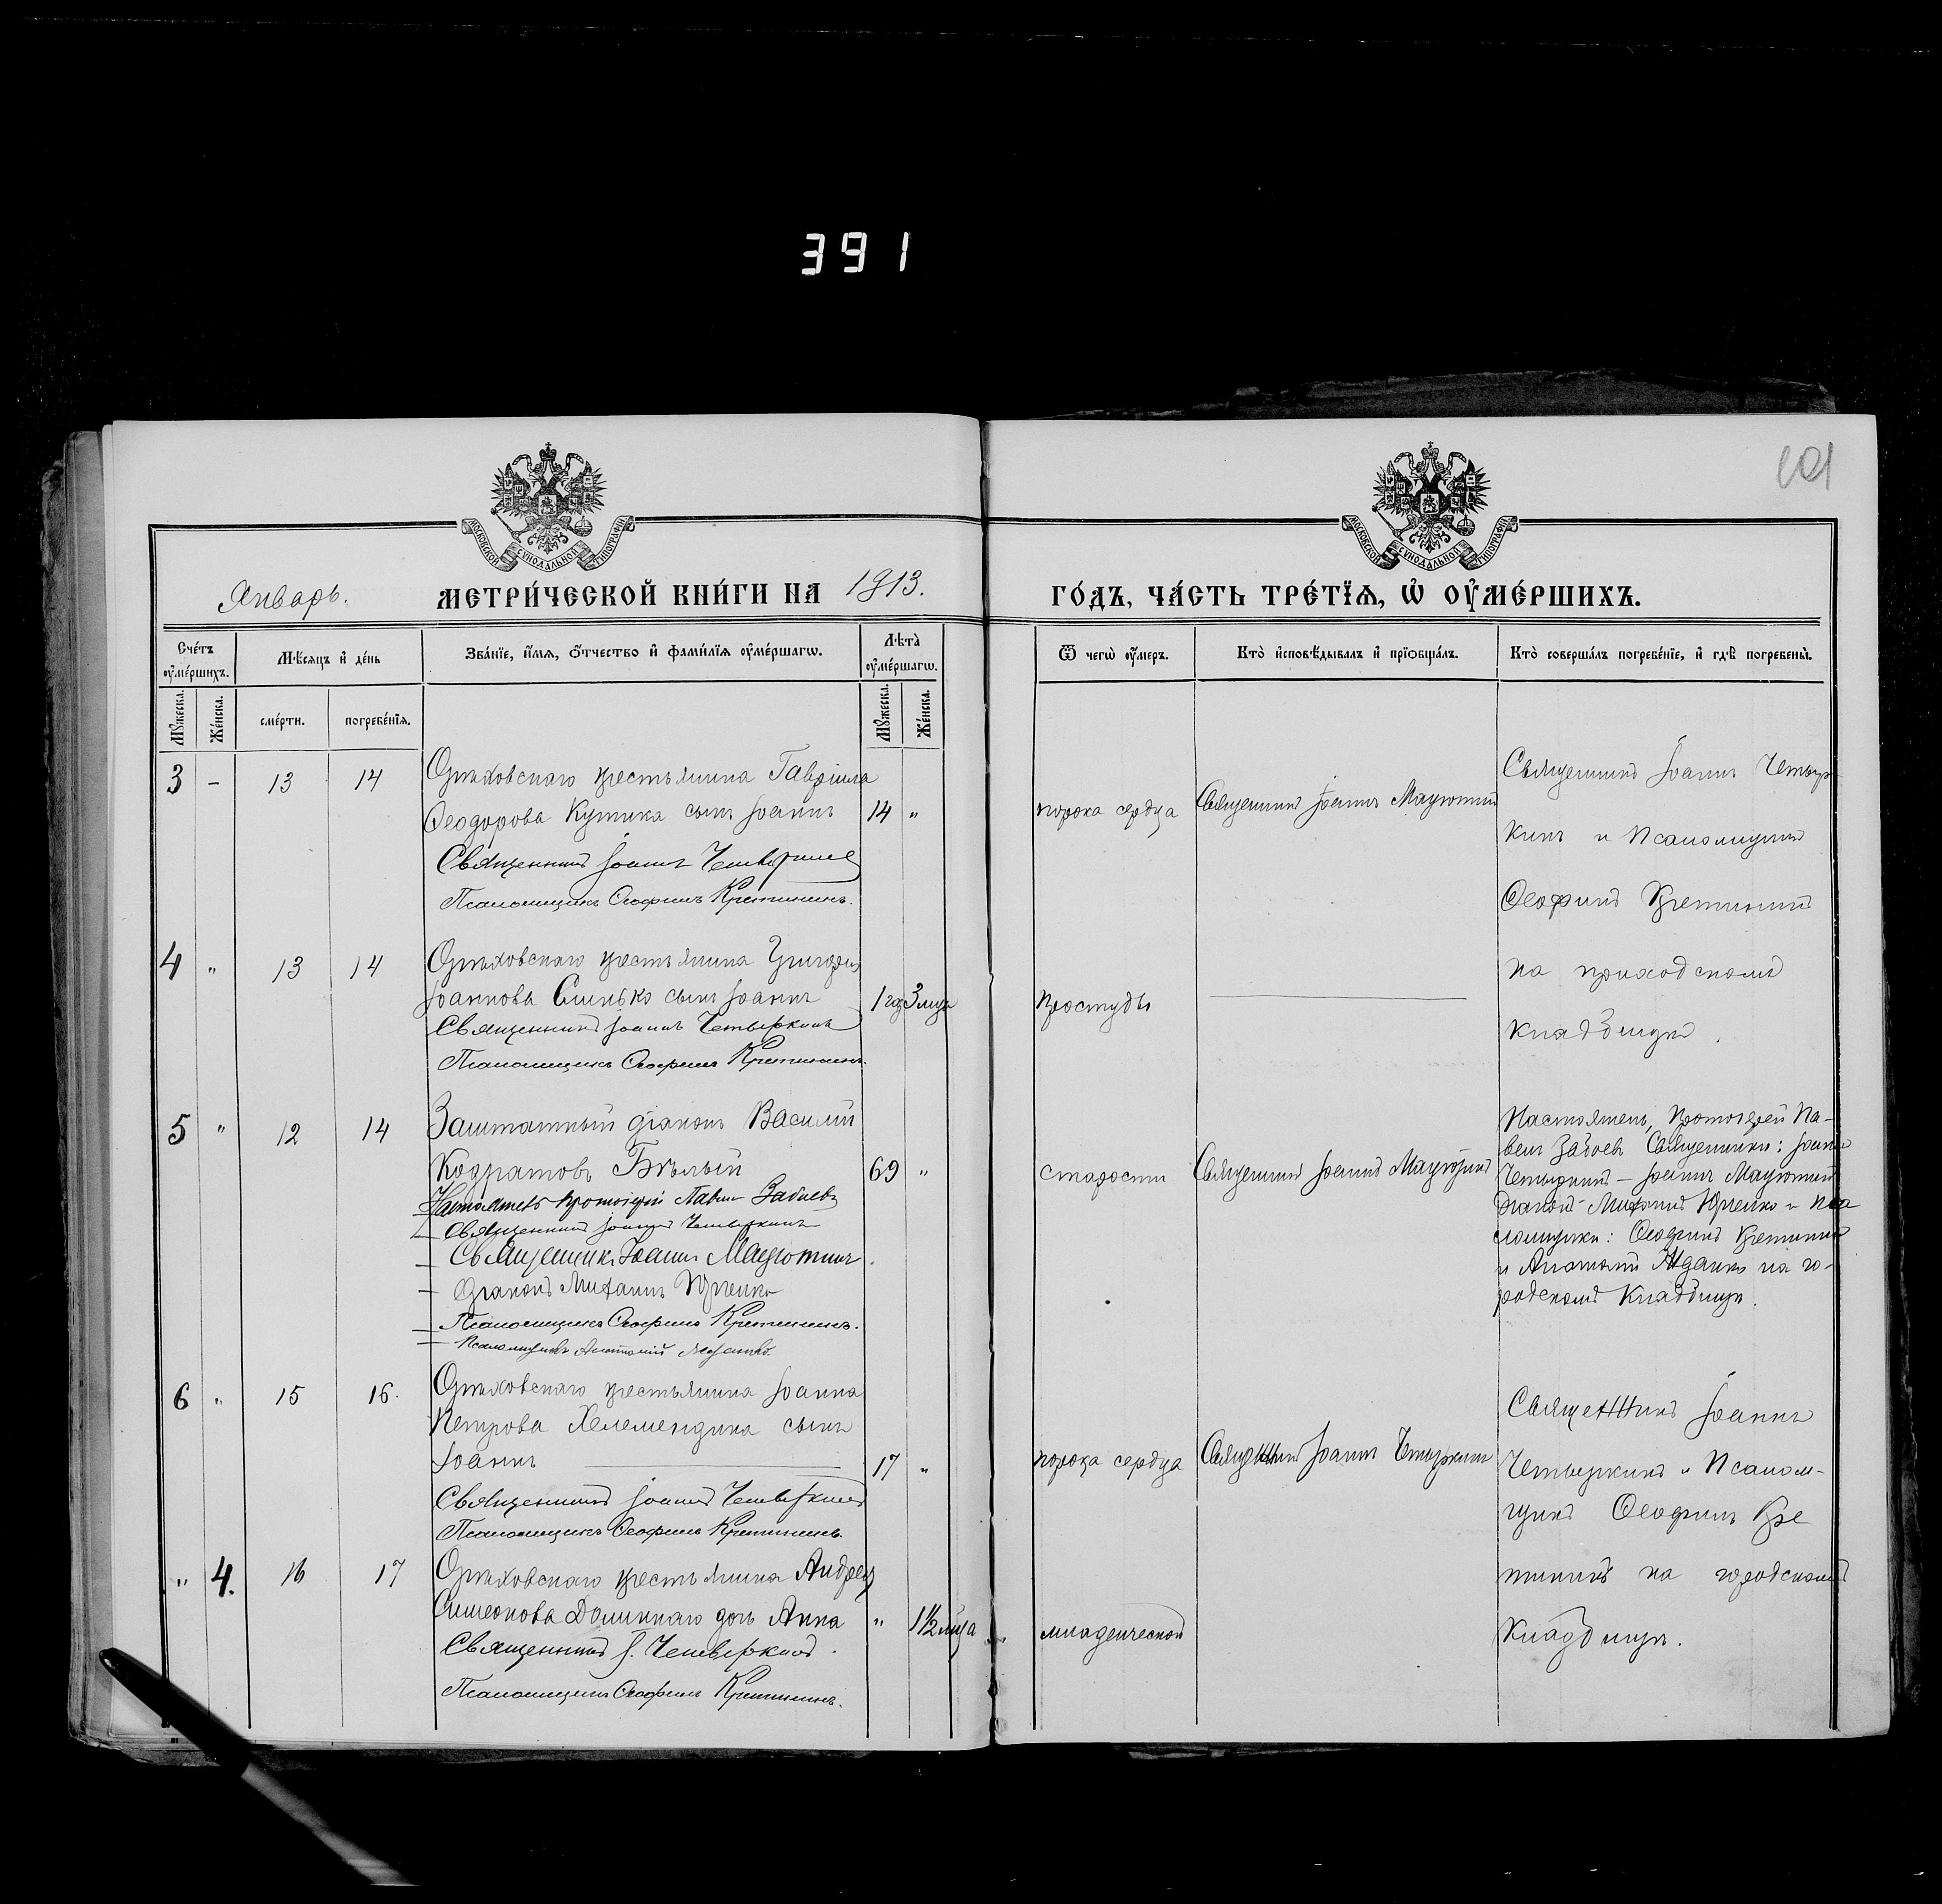 391
101
МОСКОВСКОЙ СѴНОДАЛЬНОЙ ТИПОГРАФІИ
МОСКОВСКОЙ СѴНОДАЛЬНОЙ ТИПОГРАФІИ
Январь. МЕТРИ́ЧЕСКОЙ КНИ́ГИ НА 1913.
ГО́ДЪ, ЧА́СТЬ ТРЕ́ТЇѦ, Ѡ҆ ОУ҆МЕ́РШИХЪ.
Сче́тъ оу҆ме́ршихъ.
Мѣ́сяцъ и҆ де́нь
Зва́нїе, и҆́мѧ, ѻ҆́тчество и҆ фами́лїѧ оу҆ме́ршагѡ.
Лѣ́та оу҆ме́ршагѡ.
Ѿ чегѡ̀ оу҆́меръ.
Кто̀ и҆сповѣ́дывалъ и҆ прїѻбща́лъ.
Кто̀ соверша́лъ погребе́нїе, и҆ гдѣ̀ погребены̀.
Мꙋ́жеска.
Же́нска.
сме́рти.
погребе́нїѧ.
Мꙋ́жеска.
Же́нска.
3 - 13 14 Орѣховскаго крестьянина Гавріила
Ѳеодорова Кутика сынъ Іоаннъ 14 "
Священникъ Іоаннъ Четверкинъ
Псаломщикъ Ѳеофилъ Кретининъ.
порока сердца
Священникъ Іоаннъ Мацютинъ
Священникъ Іоаннъ Четыр-
кинъ и Псаломщикъ
Ѳеофилъ Кретининъ
на приходскомъ
кладбищѣ.
4 " 13 14 Орѣховскаго крестьянина Григорія
Іоаннова Синько сынъ Іоаннъ 1 г 3 мца
Священникъ Іоаннъ Четверкинъ
Псаломщикъ Ѳеофилъ Кретининъ.
простуды
5 " 12 14 Заштатный діаконъ Василій
Кодратовъ Бѣлый 69 "
Настоятель протоіерей Павелъ Забоевъ
Священникъ Іоаннъ Четверкинъ
Священникъ Іоаннъ Мацютинъ.
Діаконъ Михаилъ Юрченко
Псаломщикъ Ѳеофилъ Кретининъ.
Псаломщикъ Анатолій
старости
Священникъ Іоаннъ Мацютинъ
Настоятель, Протоіерей Па-
велъ Забоевъ Священники: Іоаннъ
Четыркинъ – Іоаннъ Мацютинъ
Діаконъ – Михаилъ Юрченко и Пса
ломщики: Ѳеофилъ Кретининъ
и Анатолій на го-
родскомъ Кладбищѣ.
6 " 15 16. Орѣховскаго крестьянина Іоанна
Петрова Келемендика сынъ
Іоаннъ 17 "
Священникъ Іоаннъ Четверкинъ
Псаломщикъ Ѳеофилъ Кретининъ.
порока сердца
Священникъ Іоаннъ Четыркинъ
Священникъ Іоаннъ
Четыркинъ и Псалом-
щикъ Ѳеофилъ Кре
тининъ на городскомъ
Кладбищѣ.
" 4. 16 17 Орѣховскаго крестьянина Андрея
Симеонова Долиннаго дочь Анна " 1½ мца
Священникъ І. Четверкинъ.
Псаломщикъ Ѳеофилъ Кретининъ.
младенческой